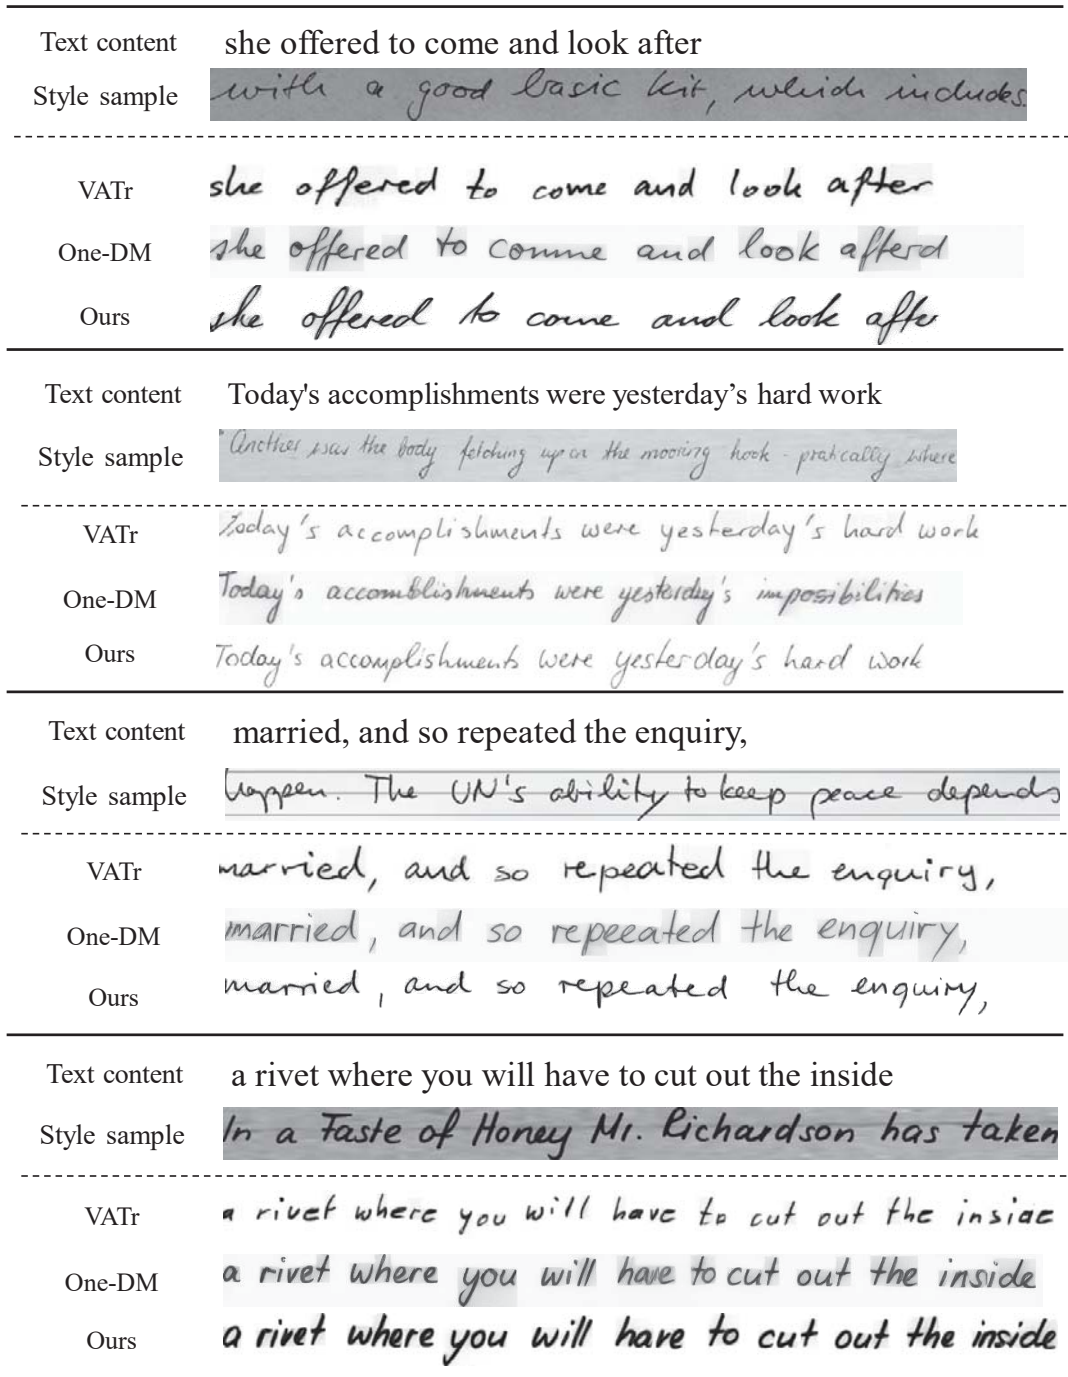 Text content she offered to come and look after
Style sample with a good basic kit, which includes
VATr she offered to come and look after
One-DM she offered to comme and look afterd
Ours she offered to come and look afte
Text content Today's accomplishments were yesterday’s hard work
Style sample Another was the body fetching up on the mooring hook - pratically where
VATr Today's accomplishments were yesterday's hard work
One-DM Today's accomblishments were yesterday's imposibilities
Ours Today's accomplishments were yesterday's hard work
Text content married, and so repeated the enquiry,
Style sample happen. The UN's ability to keep peace depends
VATr married, and so repeated the enquiry,
One-DM married, and so repeeated the enquiry,
Ours married, and so repeated the enquiry,
Text content a rivet where you will have to cut out the inside
Style sample In a Taste of Honey Mr. Richardson has taken
VATr a rivet where you will have to cut out the inside
One-DM a rivet where you will have to cut out the inside
Ours a rivet where you will have to cut out the inside